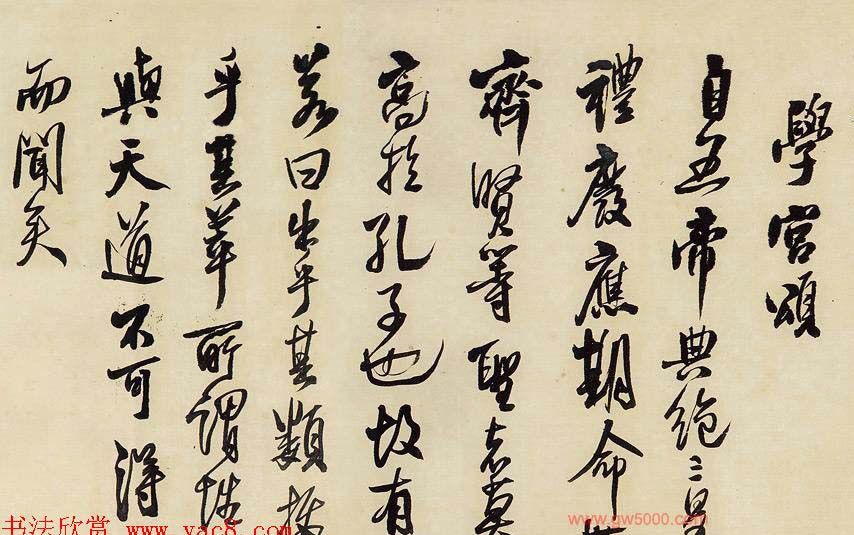 學宮頌
自五帝典絕三
禮廢應期命
齊賢等聖者莫
高於孔子也故有
若曰出乎其類拔
乎其萃所謂性
與天道不可得
而聞矣
书法欣赏 www.yac8.com
www.gw5000.com